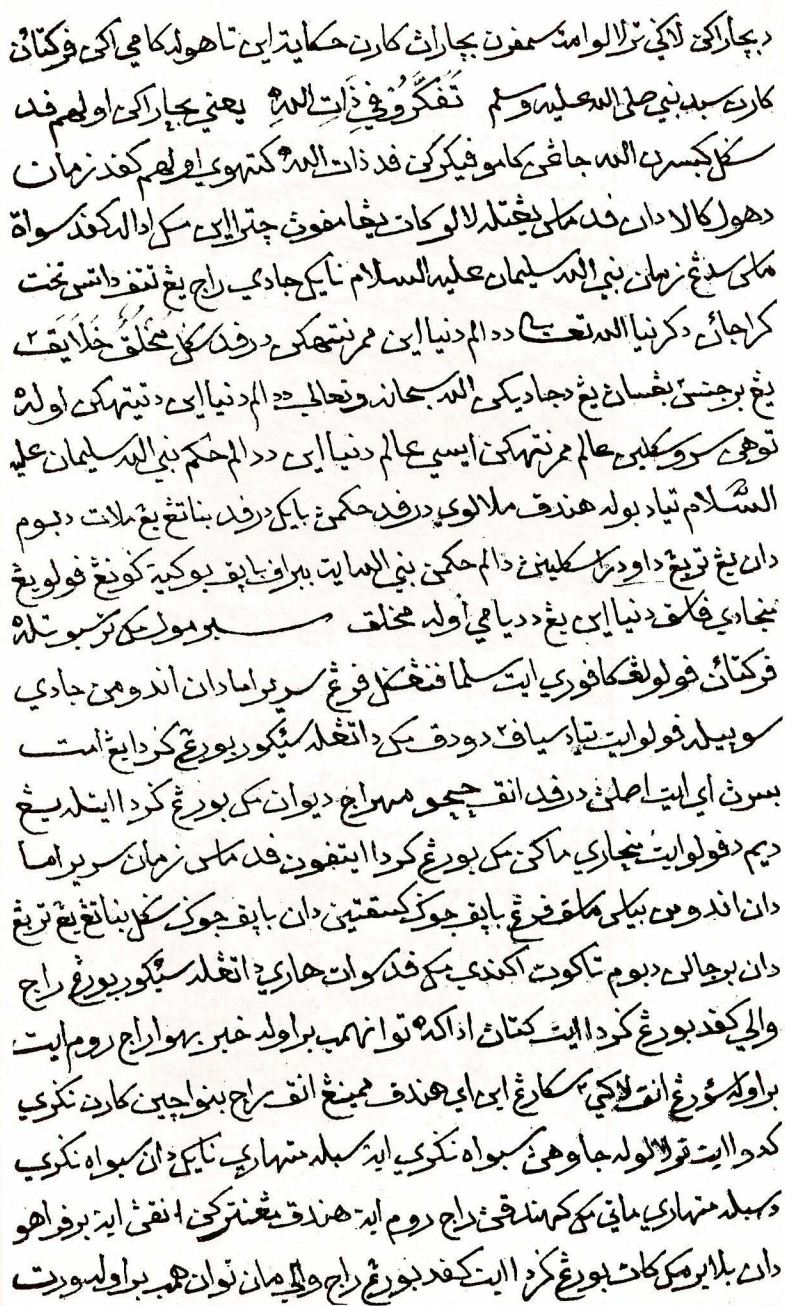 دبچاراكن لاكي ترلالو امت سمفرن بچاراث كارن حكاية اين تاهوله كامي اكن فركتائن
كارن سبد نبي صلى الله عليه وسلم تَفَكَّرُوْفِي ذَاتِ اللهِ يعني بچاراكن اولهم فد
سكل كبسرن الله جاڠن كامو فيكركن فد ذات الله كتهوي اولهم كفد زمان
دهول كالا دان فد ماس يڠتله لالو كات يڠامفوث چترا اين مك ادا له كفد سواة
ماس سدڠ زمان نبي الله سليمان عليه السلام نايك جادي راج يڠ تتف داتس تخت
كراجائن دكرنيا الله تعالى ددالم دنيا اين ممرنتهكن درفد سكل مُخَلُقُ خَلَايَقَ٢
يڠ برجنس٢ بڠسان يڠ دجاديكن الله سبحانه وتعالى ددالم دنيا اين دتيتهكن اوله
توهن سرو سكلين عالم ممرنتهكن ايسي عالم دنيا اين ددالم حكم نبي الله سليمان عليه
السّلام تياد بوله هندق ملالوي درفد حكمن بايك درفد بناتڠ يڠ ملات دبوم
دان يڠ تربڠ داودرا سكلينن دالم حكمن نبي الله ايت ببراف باپق بوكية كونڠ فولو يڠ
منجادي فاسق دنيا اين يڠ دديامي اوله مخلق سبرمول مك ترسبوتله
فركتائن فولو لڠكافوري ايت سلما فنڠكل فرڠ سريراما دان اندومن جادي
سوپيله فولو ايت تياد سياف٢ دودق مك داتڠله سيكور بورڠ كردا يڠ امت
بسرث اي ايت اصلن درفد انق چچو مهراج ديوان مك بورڠ كردا ايتله يڠ
ديم دفولو ايت منچاري ماكن مك بورڠ كردا ايتفون فد ماس زمان سريراما
دان اندومن بياس ماسق فرڠ باپق جوك كسقتين دان باپق جوك سكل بناتڠ يڠ تربڠ
دان برجالن دبوم تاكوت اكندي مك فد سوات هاري داتڠله سيكور بورڠ راج
والي كفد بورڠ كردا ايت كتان اداكه توانهمب براوله خبر بهوا راج روم ايت
براوله سؤرڠ انق لاكي٢ سكارڠ اين اي هندق ممينڠ انق راج بنوا چين كارن نكري
كدوا ايت ترلالوله جاوهن سبواه نكري ايت سبله متهاري نايك دان سبواه نكري
دسبله متهاري ماتي مك كهندقن راج روم ايت هندق مڠنتركن انقن ايت برفراهو
دان بلاير مك كات بورڠ كردا ايت كفد بورڠ راج والي مان توان همب براوله ورت